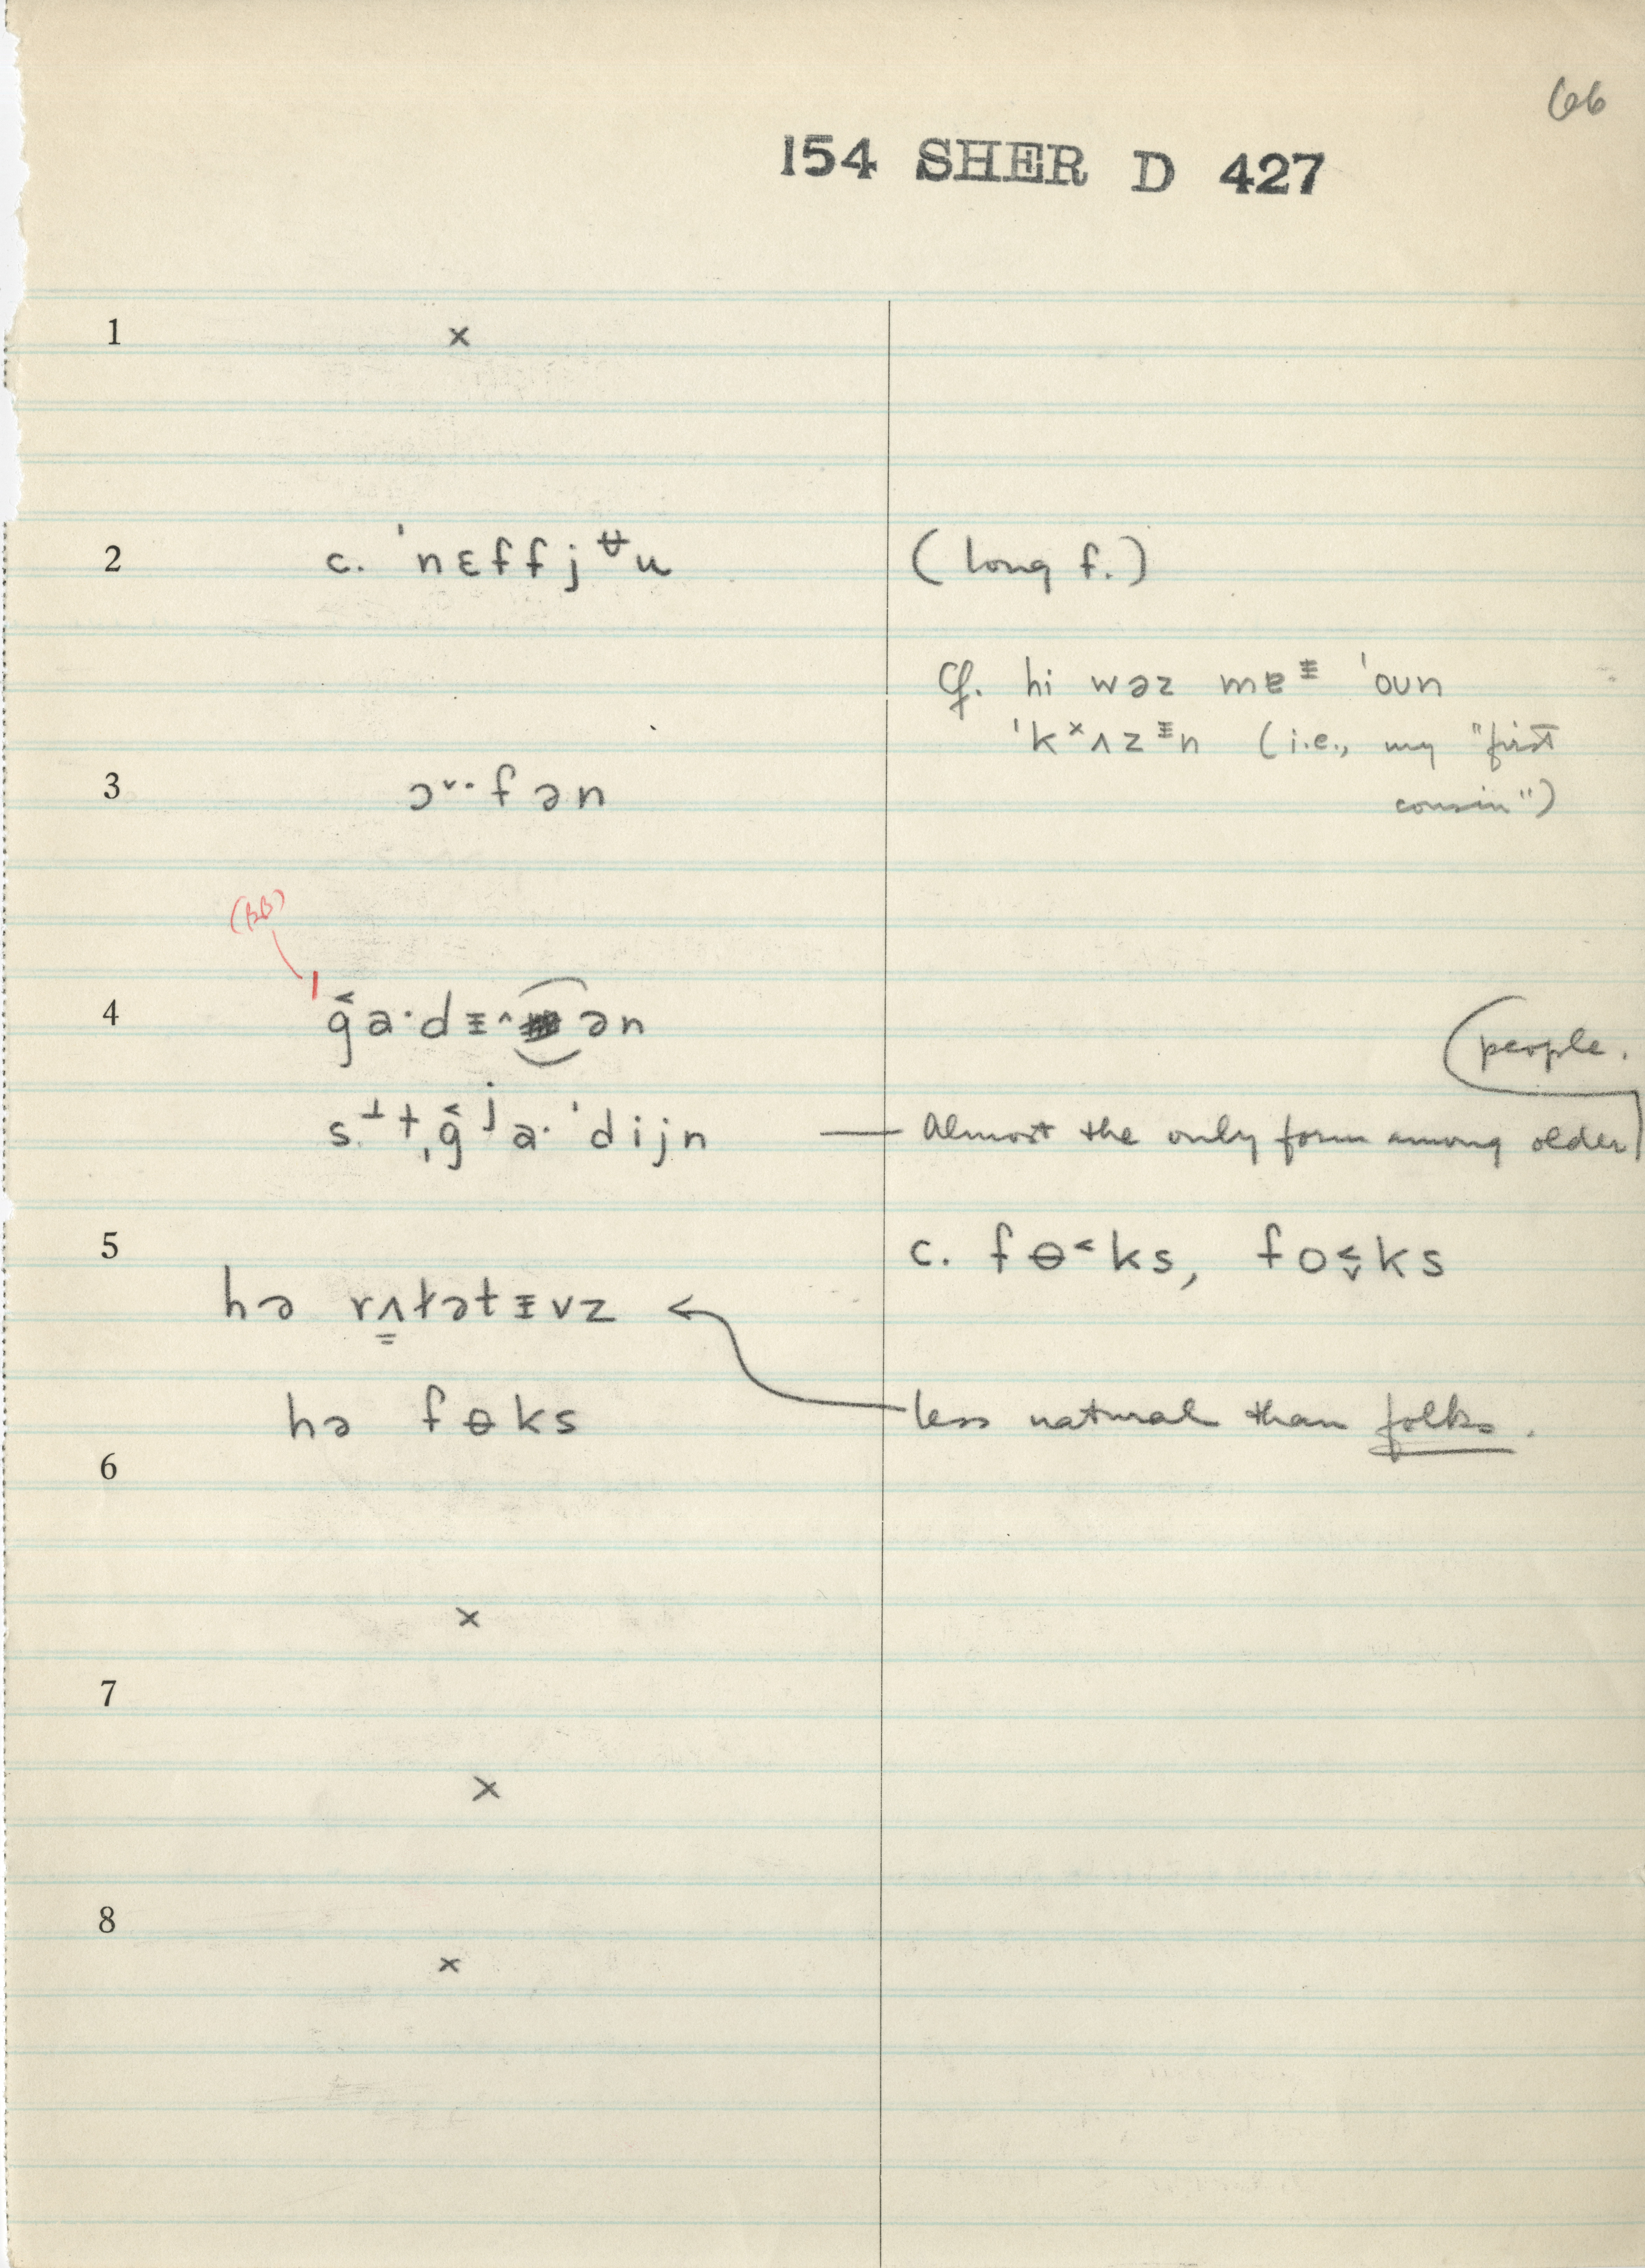 66
154 SHER D 427
1 ×
2 c. ˈnɛffjᵾu (long f.)
Cf. hi wəz mɐᵻ ˈoun
ˈkˣʌzᵻn (i.e., my "first
3 ɔˇ·fən cousin")
(BB)
4 ˈg̑a·dᵻ^ən
people.
s⊥t,g̑ʲa·ˈdijn — Almost the only form among older
5 c. fɵ˂ks, fo˂ˬks
hə rʌɫətᵻvz
hə fɵks less natural than folks.
6
×
7
×
8
×